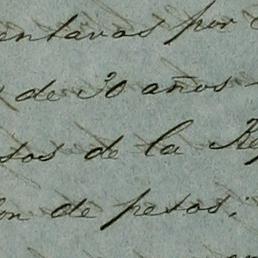 entavos por
de 30 años
sos de la Re
on de pesos;